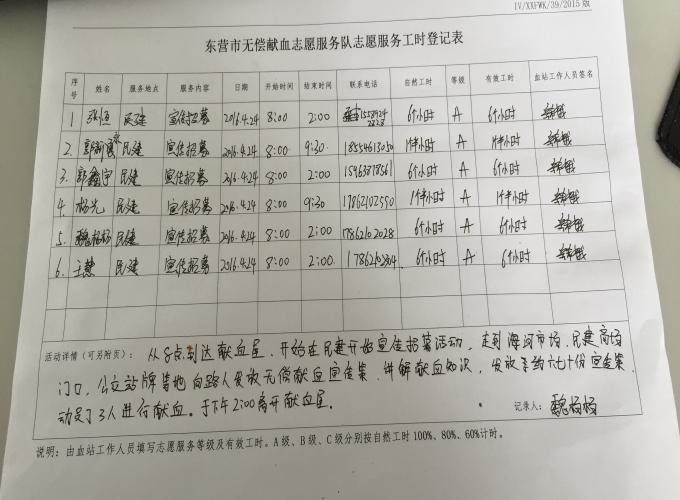 IV/XXFWK/39/2015版
东营市无偿献血志愿服务队志愿服务工时登记表
序号 姓名 服务地点 服务内容 日期 开始时间 结束时间 联系电话 自然工时 等级 有效工时 血站工作人员签名
1 张恒 民建 宣传招募 2016.4.24 8:00 2:00 6个小时 A 6个小时
2. 民建 宣传招募 2016.4.24 8:00 9:30 18554613050 1个半小时 A 1个半小时
3. 郭鑫宇 民建 宣传招募 2016.4.24 8:00 2:00 15963878561 6个小时 A 6个小时
4. 杨光 民建 宣传招募 2016.4.24 8:00 9:30 17862102550 1个半小时 A 1个半小时
5. 魏杨杨 民建 宣传招募 2016.4.24 8:00 2:00 17862102028 6个小时 A 6个小时
6. 王慧 民建 宣传招募 2016.4.24 8:00 2:00 17862102304 6个小时 A 6个小时
活动详情(可另附页): 从8点到达献血屋,开始在民建开始宣传招募活动,走到海河市场、民建商场
门口,公交站牌等地向路人发放无偿献血宣传集,讲解献血知识,发放了约六七十份宣传集,
动员了3人进行献血。于下午2:00离开献血屋。
记录人: 魏杨杨
说明:由血站工作人员填写志愿服务等级及有效工时。A级、B级、C级分别按自然工时100%、80%、60%计时。